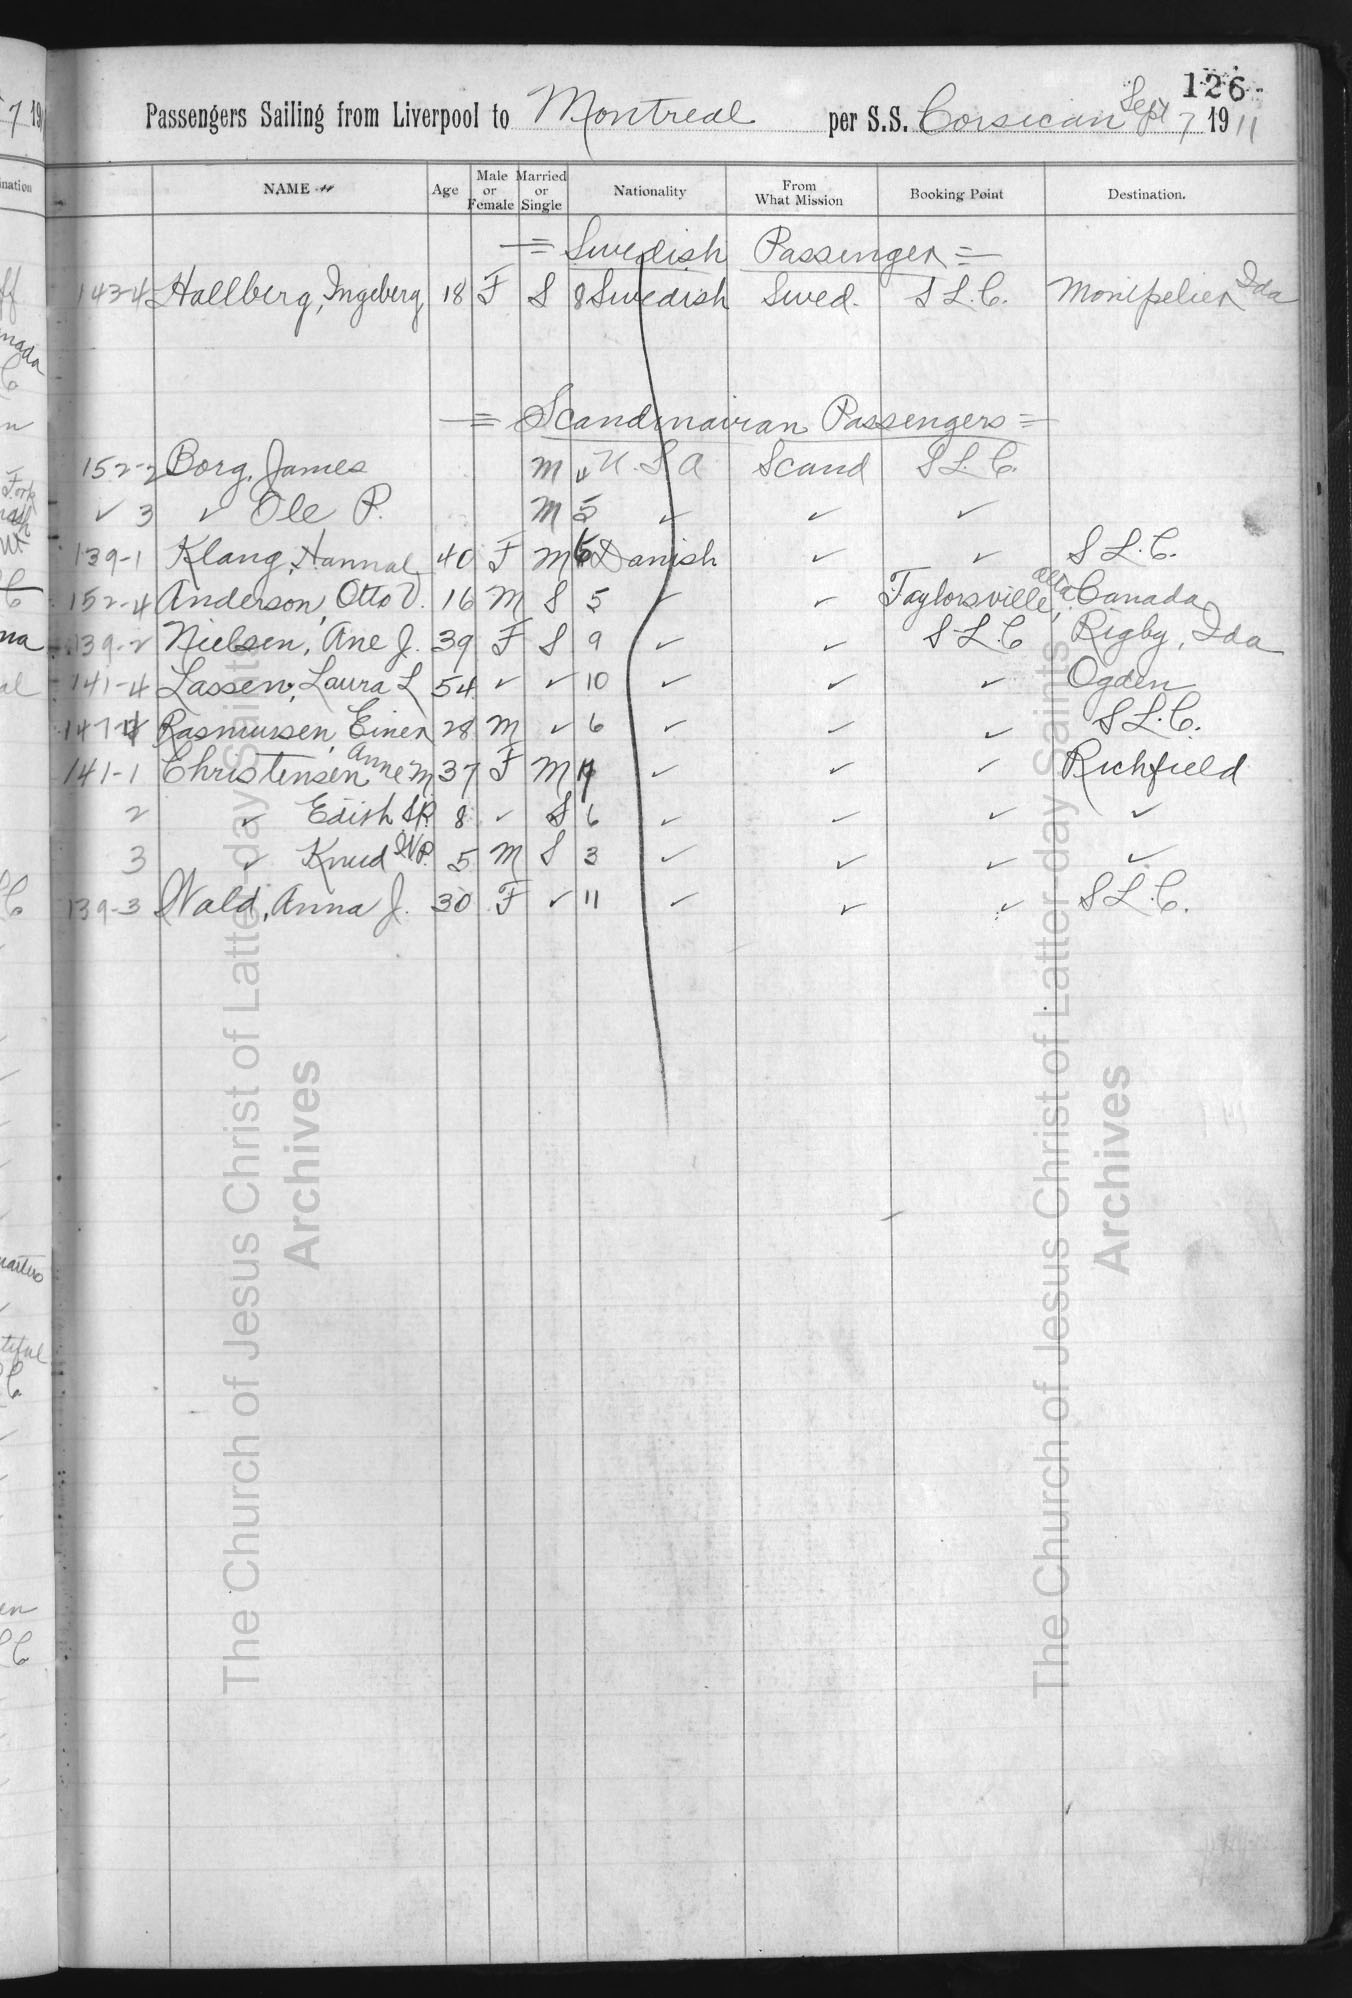 126
Passengers Sailing from Liverpool to Montreal per S.S. Corsican Sept 7 1911
NAME Age Male or Female Married or Single Nationality From What Mission Booking Point Destination.
= Swedish Passenger =
143-4 Hallberg, Ingeberg 18 F S 8 Swedish Swed. S L.C. Montpelier Ida
= Scandinavian Passengers =
152-2 Borg, James M 4 U.S.A Scand S L.C.
✓ 3 ✓ Ole P. M 5 ✓ ✓ ✓
139-1 Klang, Hannah 40 F M 6 Danish ✓ ✓ S L.C.
152-4 Anderson, Otto V. 16 M S 5 ✓ ✓ Taylorsville, Alta Canada
139-2 Nielsen, Ane J. 39 F S 9 ✓ ✓ S L C Rigby, Ida
141-4 Lassen, Laura L 54 ✓ ✓ 10 ✓ ✓ ✓ Ogden
147-4 Rasmussen, Einer 28 M ✓ 6 ✓ ✓ ✓ S L.C.
141-1 Christensen Anne M 37 F M ✓ ✓ ✓ Richfield
2 ✓ Edith SP. 8 ✓ S 6 ✓ ✓ ✓ ✓
3 ✓ Knud WP. 5 M S 3 ✓ ✓ ✓ ✓
139-3 Wald, Anna J. 30 F ✓ 11 ✓ ✓ ✓ S L.C.
The Church of Jesus Christ of Latter-day Saints
Archives
The Church of Jesus Christ of Latter-day Saints
Archives